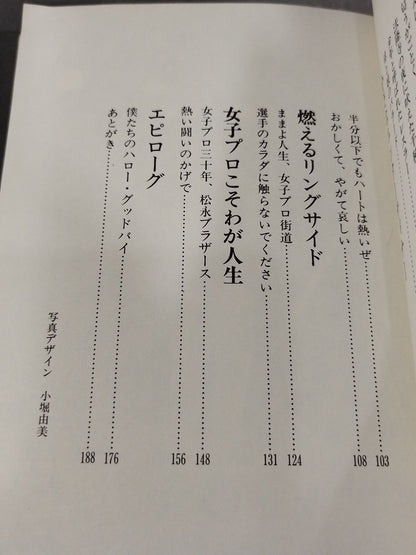 半分以下でもハートは熱いぜ……103
おかしくて、やがて哀しい……108
燃えるリングサイド
ままよ人生、女子プロ街道……124
選手のカラダに触らないでください……131
女子プロこそわが人生
女子プロ三十年、松永ブラザース……148
熱い闘いのかげで……156
エピローグ
僕たちのハロー・グッドバイ……176
あとがき……188
写真デザイン 小堀由美